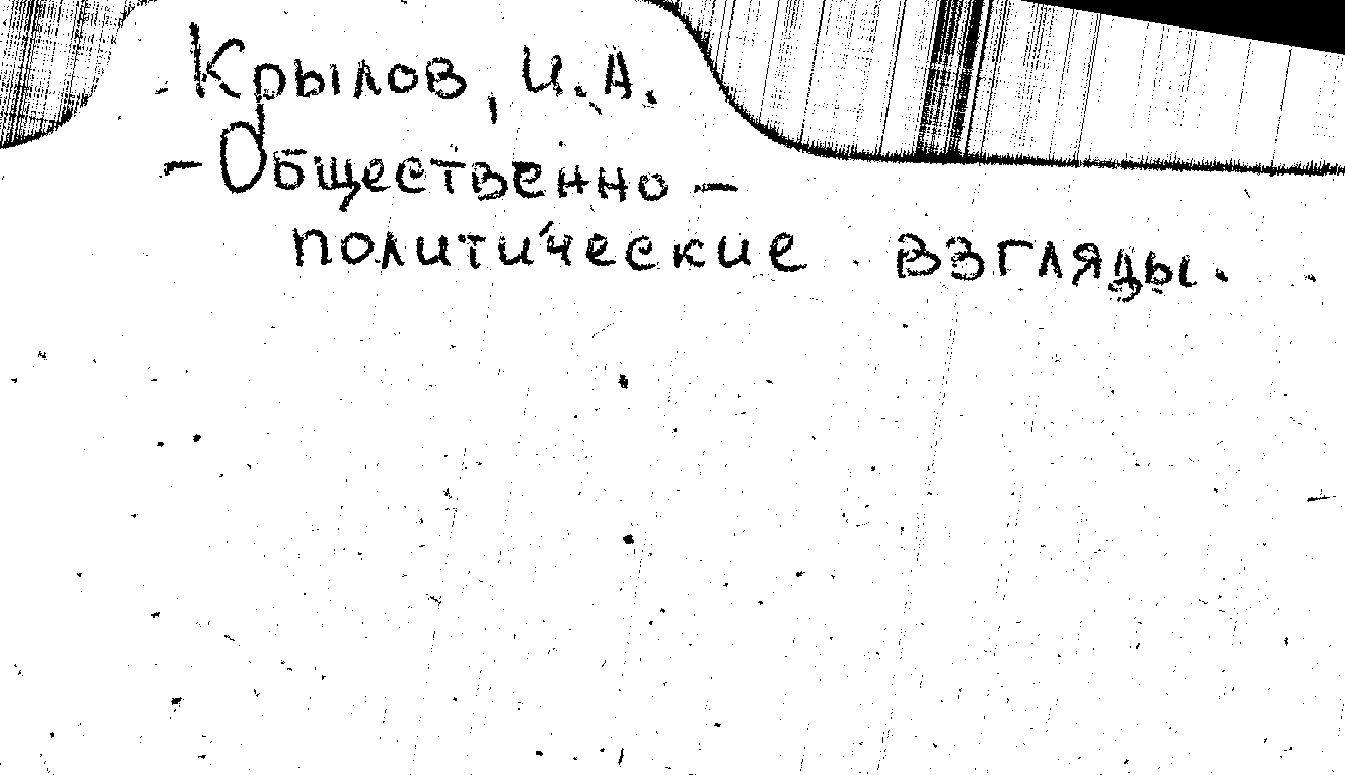 Крылов, И.А.
- Общественно -
политические взгляды.